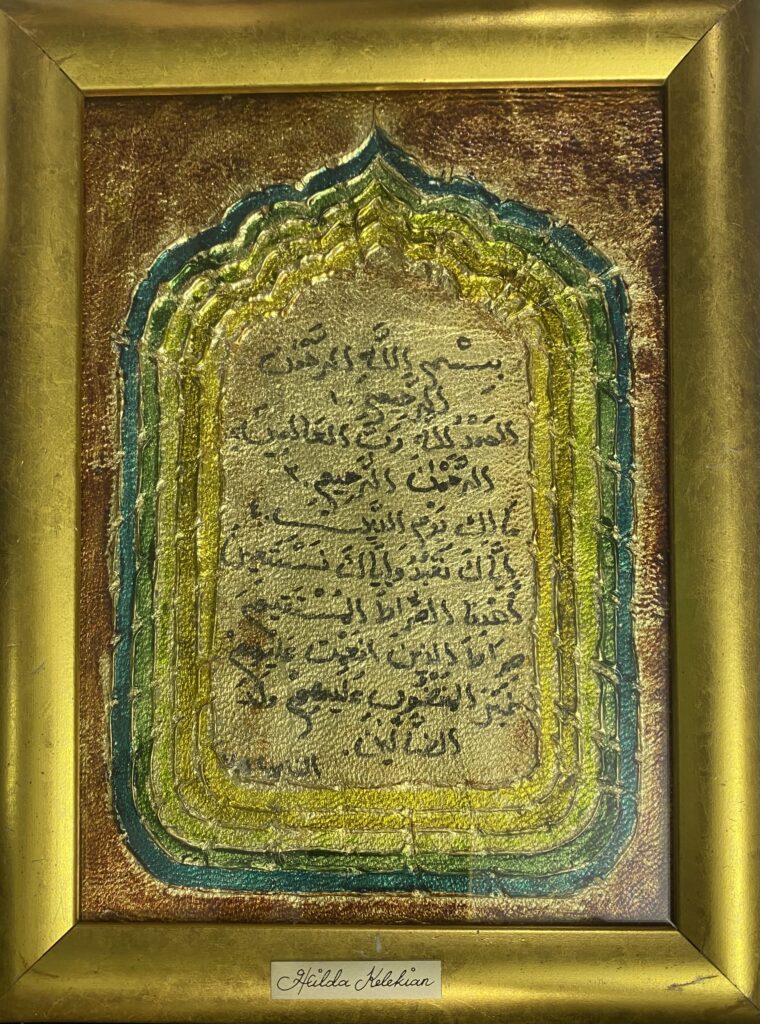 بِسْمِ اللَّهِ الرَّحْمٰنِ
الرَّحِيمِ ١٠
الحَمْدُ لله رَبِّ العَالمِينَ
الرَّحْمٰنِ الرَّحِيمِ ٣٠
مَالِكِ يَوْمِ الدِّينِ ٤٠
إِيَّاكَ نَعْبُدُ وَإِيَّاكَ نَسْتَعِينُ
إِهْدِنَا الصِّرَاطَ المُسْتَقِيمَ
صِرَاطَ الَّذِينَ أَنْعَمْتَ عَلَيْهِمْ
غَيْرِ المَغْضُوبِ عَلَيْهِمْ وَلاَ
الضَّالِّينَ.
Hilda Kelekian